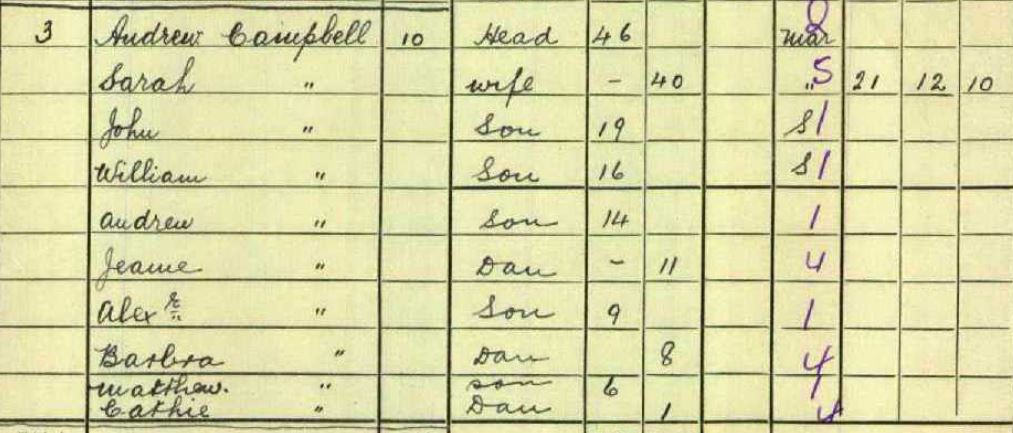 3 Andrew Campbell 10 Head 46 mar
Sarah " wife - 40 " 5 21 12 10
John " Son 19 S 1
William " Son 16 S 1
Andrew " Son 14 1
Jeanie " Dau - 11 4
Alexr " Son 9 1
Barbra " Dau 8 4
Matthew. " son 6
Cathie " Dau 1 4